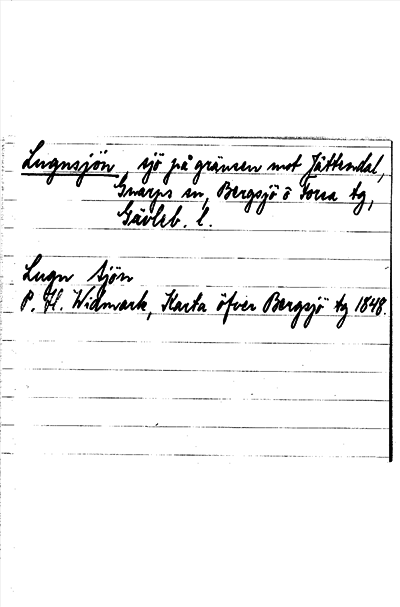 Lugnsjön, sjö på gränsen mot Jättendal,
Gnarps sn, Bergsjö o Forsa tg,
Gävleb. l.
Lugn Sjön
P. H. Widmark, Karta öfver Bergsjö tg 1848.